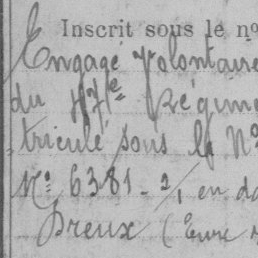 Inscrit sous le no
Engagé Volontaire
du Régime
triculé sous le No
No 6381-2, en da
Dreux (Eure